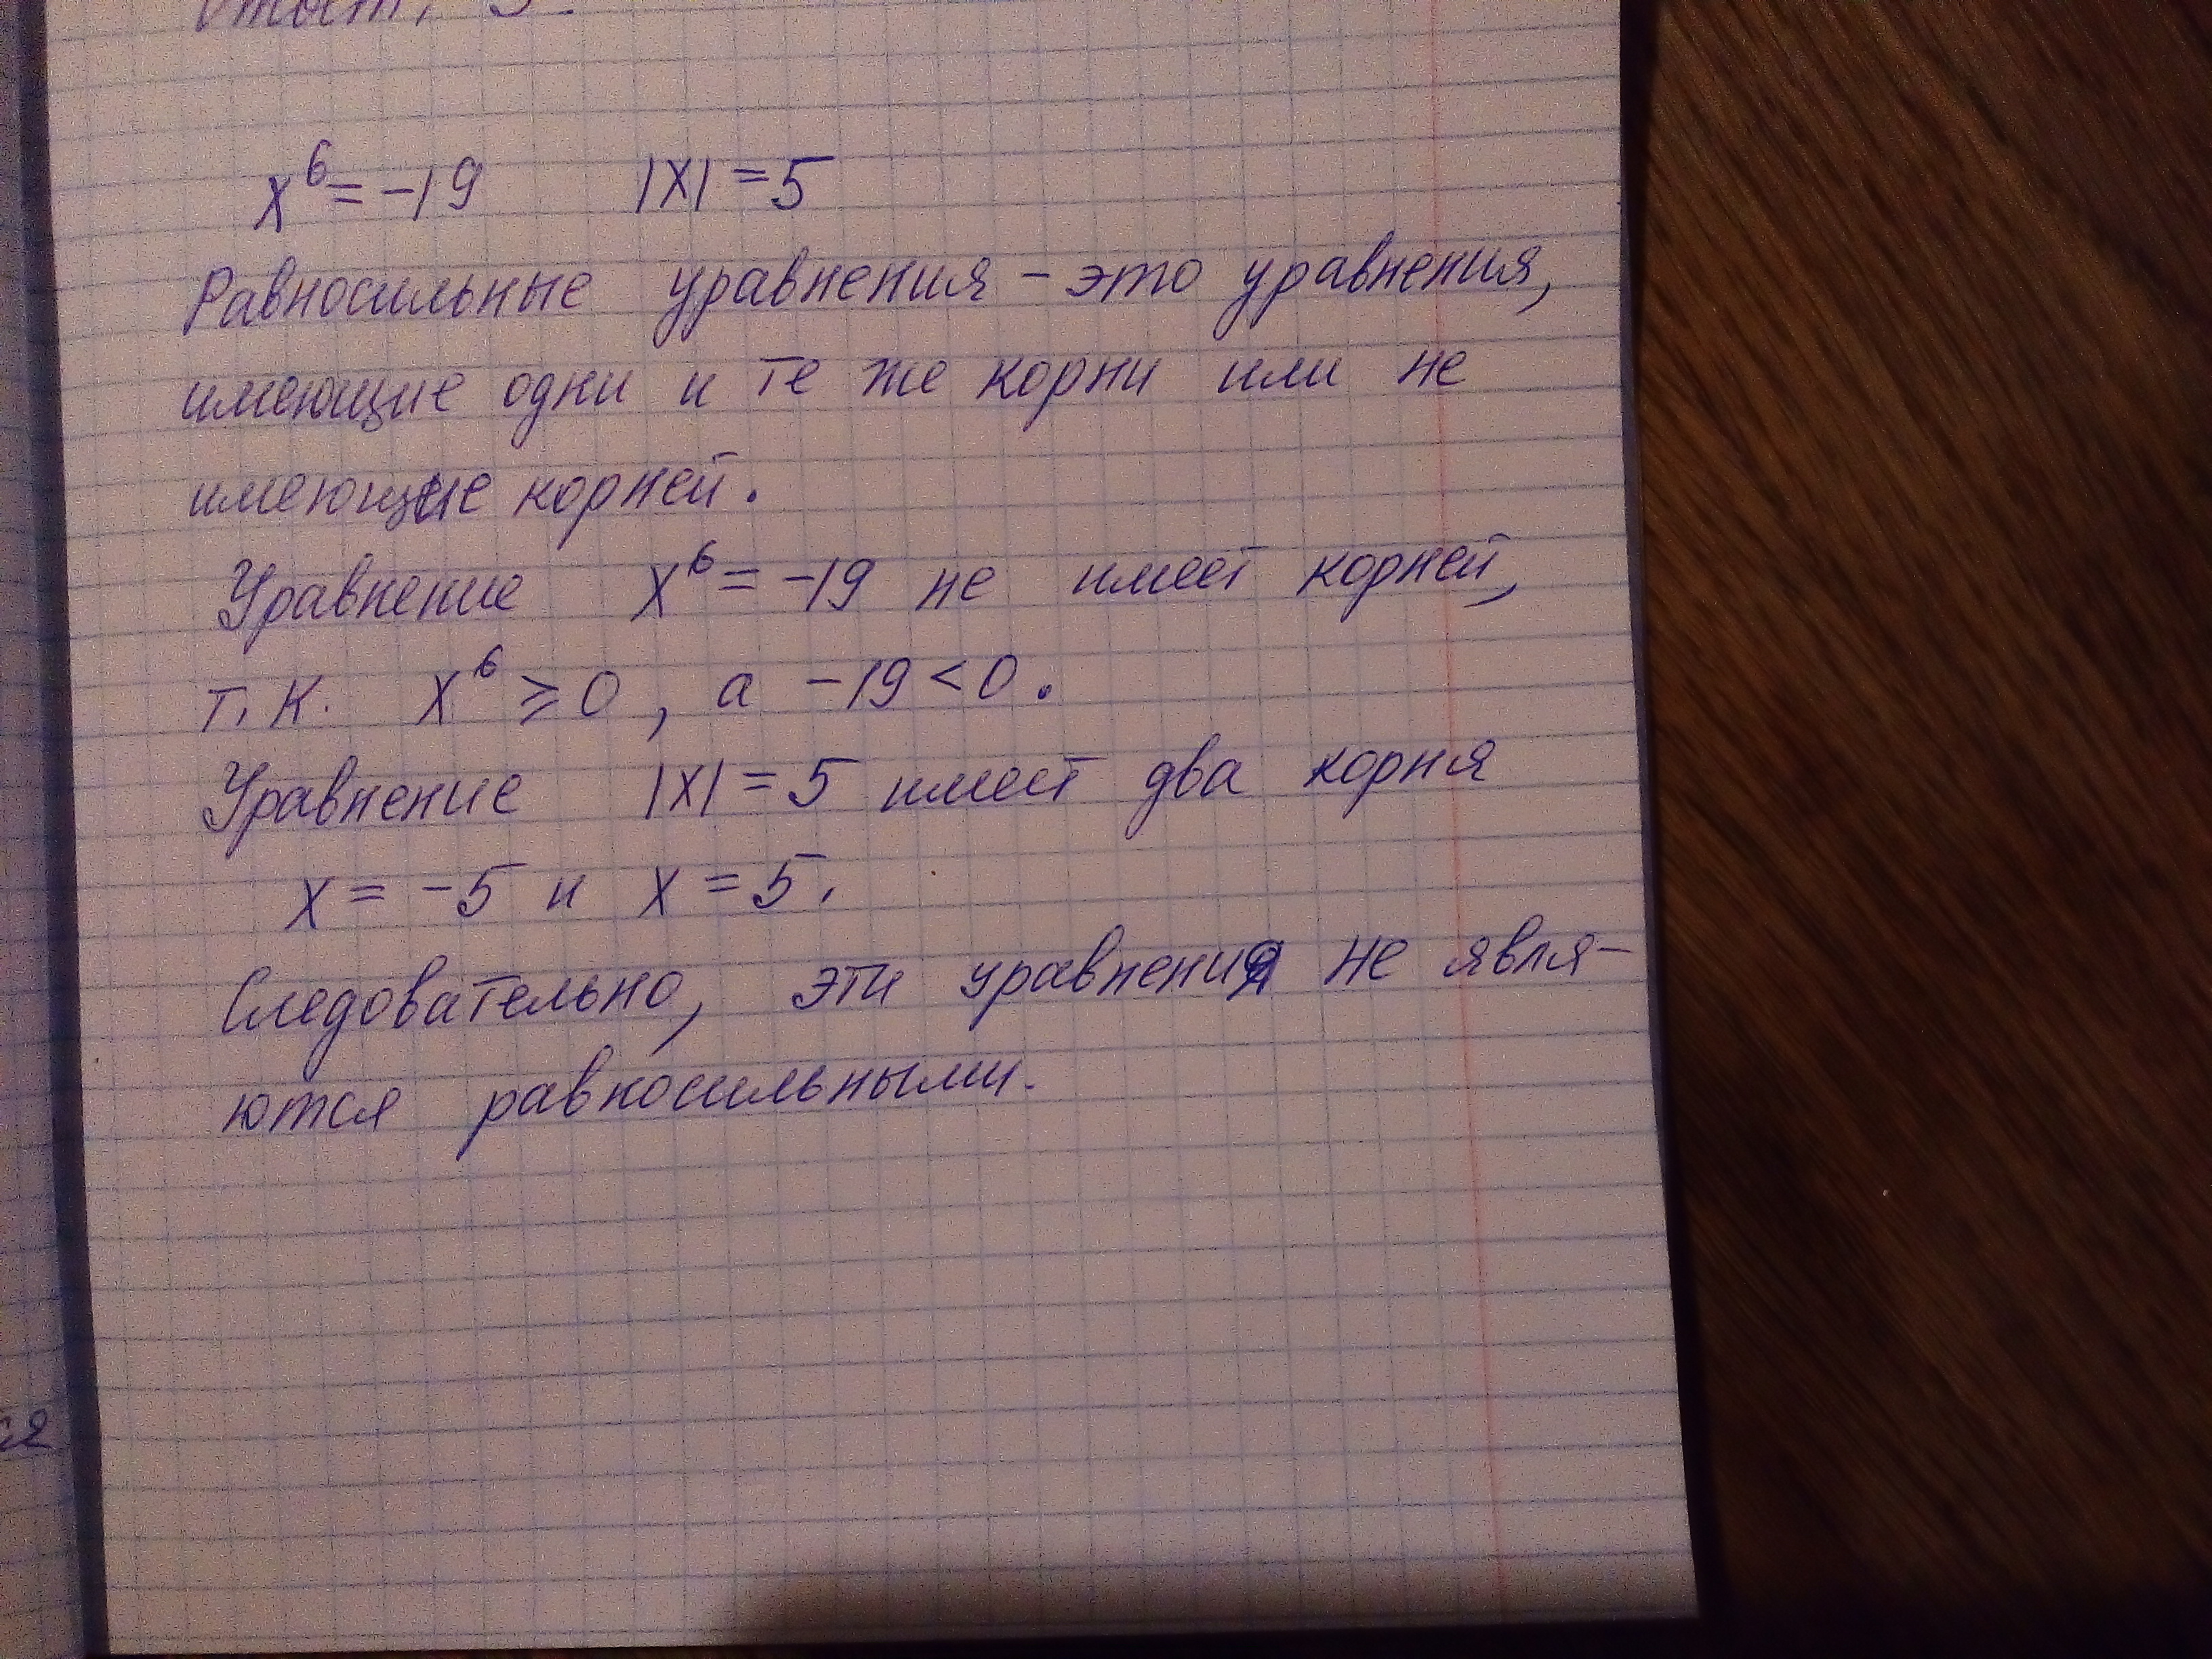 x⁶ = -19 |x| = 5
Равносильные уравнения - это уравнения,
имеющие одни и те же корни или не
имеющие корней.
Уравнение x⁶ = -19 не имеет корней,
т.к. x⁶ ⩾ 0, а -19 < 0.
Уравнение |x| = 5 имеет два корня
x = -5 и x = 5.
Следовательно, эти уравнения не явля-
ются равносильными.